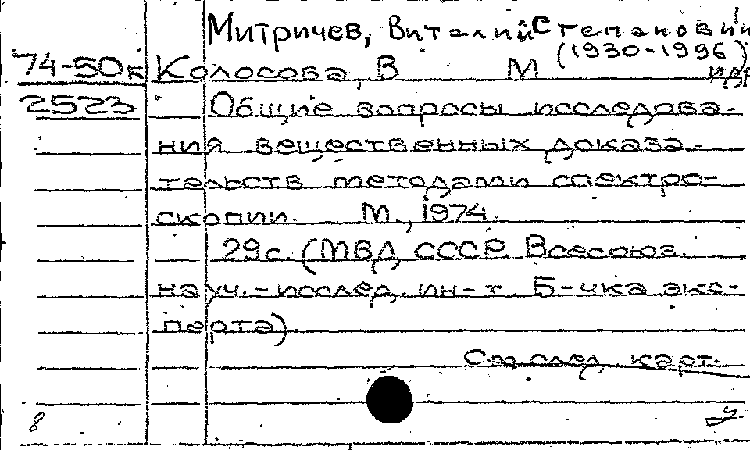 Митричев, Виталий Степанович
(1930-1996)
74-50к Колосова, В М и др
2523 Общие вопросы исследова-
ния вещественных доказа-
тельств методами спектро-
скопии. М., 1974.
29 с. (МВД СССР. Всесоюз.
науч.-исслед. ин-т. Б-чка экс-
перта)
См. след. карт.
8